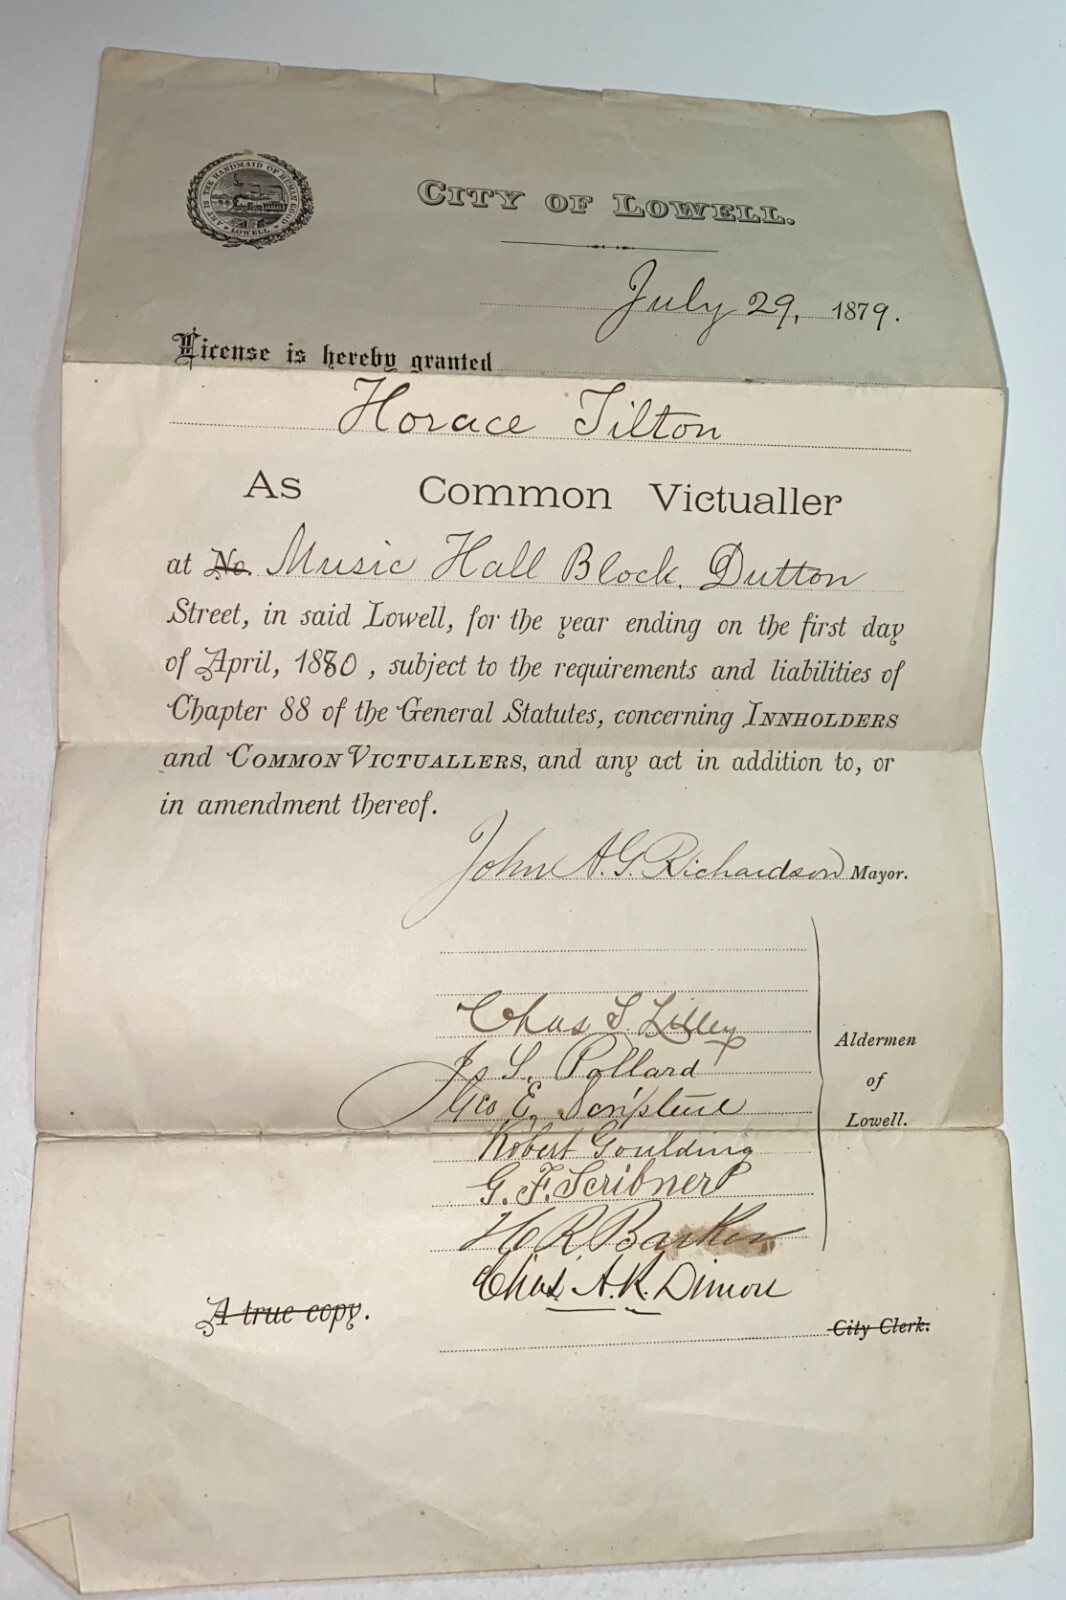 ART IS THE HANDMAID OF HUMAN GOOD
LOWELL
CITY OF LOWELL.
July 29, 1879.
License is hereby granted
Horace Tilton
As Common Victualler
at No. Music Hall Block, Dutton
Street, in said Lowell, for the year ending on the first day
of April, 1880, subject to the requirements and liabilities of
Chapter 88 of the General Statutes, concerning INNHOLDERS
and COMMON VICTUALLERS, and any act in addition to, or
in amendment thereof.
John A. G. Richardson Mayor.
Chas S. Lilley
Js S. Pollard
Geo E. Scripture
Robert Goulding
G. F. Scribner
H R Barker
Chas. A. R. Dimon
Aldermen
of
Lowell.
A true copy.
City Clerk.